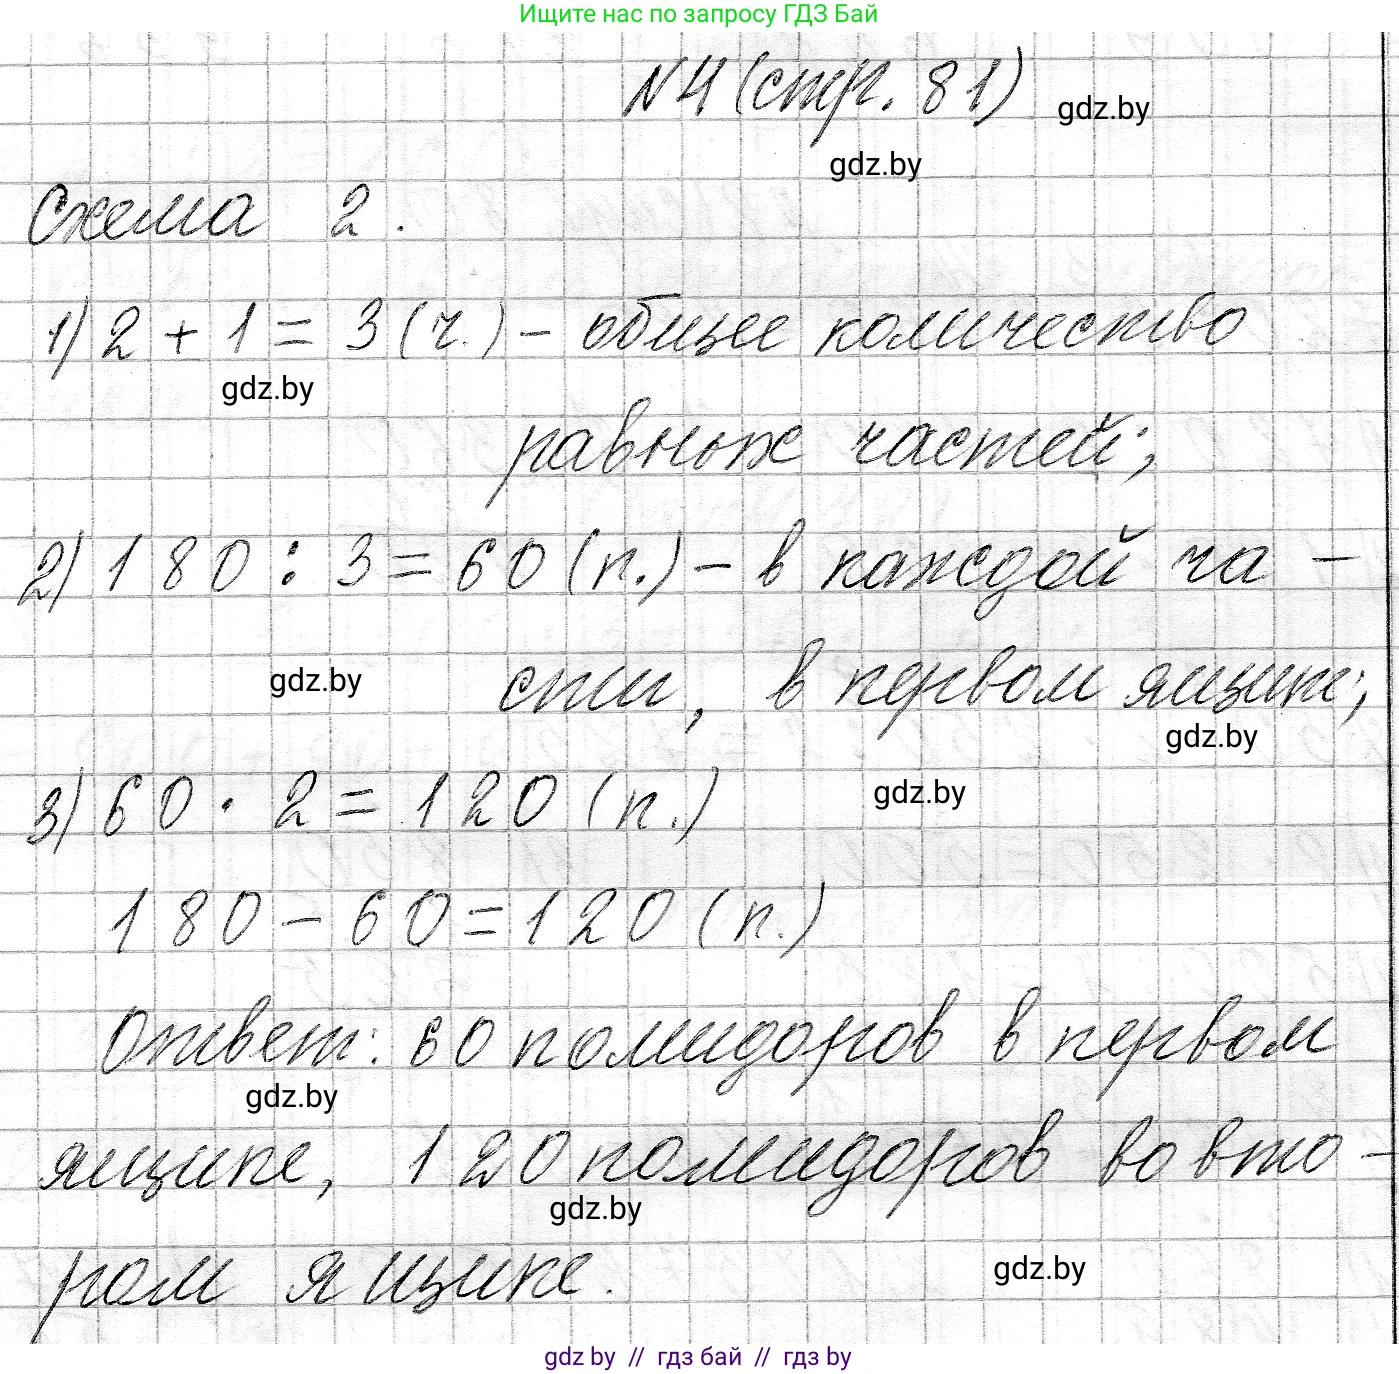 Ищите нас по запросу ГДЗ Бай
N4 (стр. 81) gdz.by
gdz.by
Схема 2.
1) 2 + 1 = 3 (ч.) - общее количество
gdz.by
равных частей;
2) 180 : 3 = 60 (п.) - в каждой ча -
сти, в первом ящике;
gdz.by
gdz.by
3) 60 · 2 = 120 (п.)
gdz.by
180 - 60 = 120 (п.)
Ответ: 60 помидоров в первом
gdz.by
ящике, 120 помидоров во вто -
gdz.by
ром ящике.
gdz.by
gdz by // гдз бай // гдз by